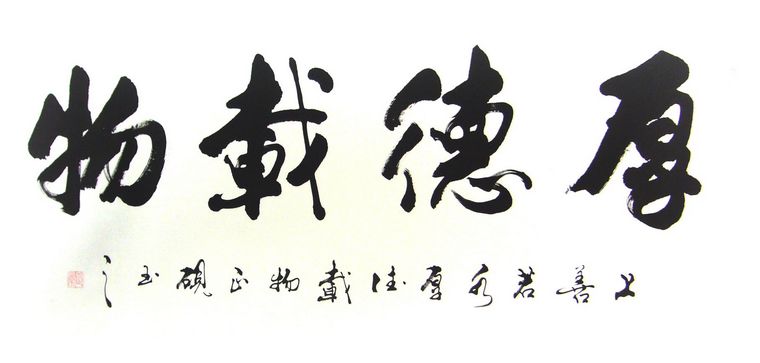 厚德載物
上善若水厚德載物正硯玉之